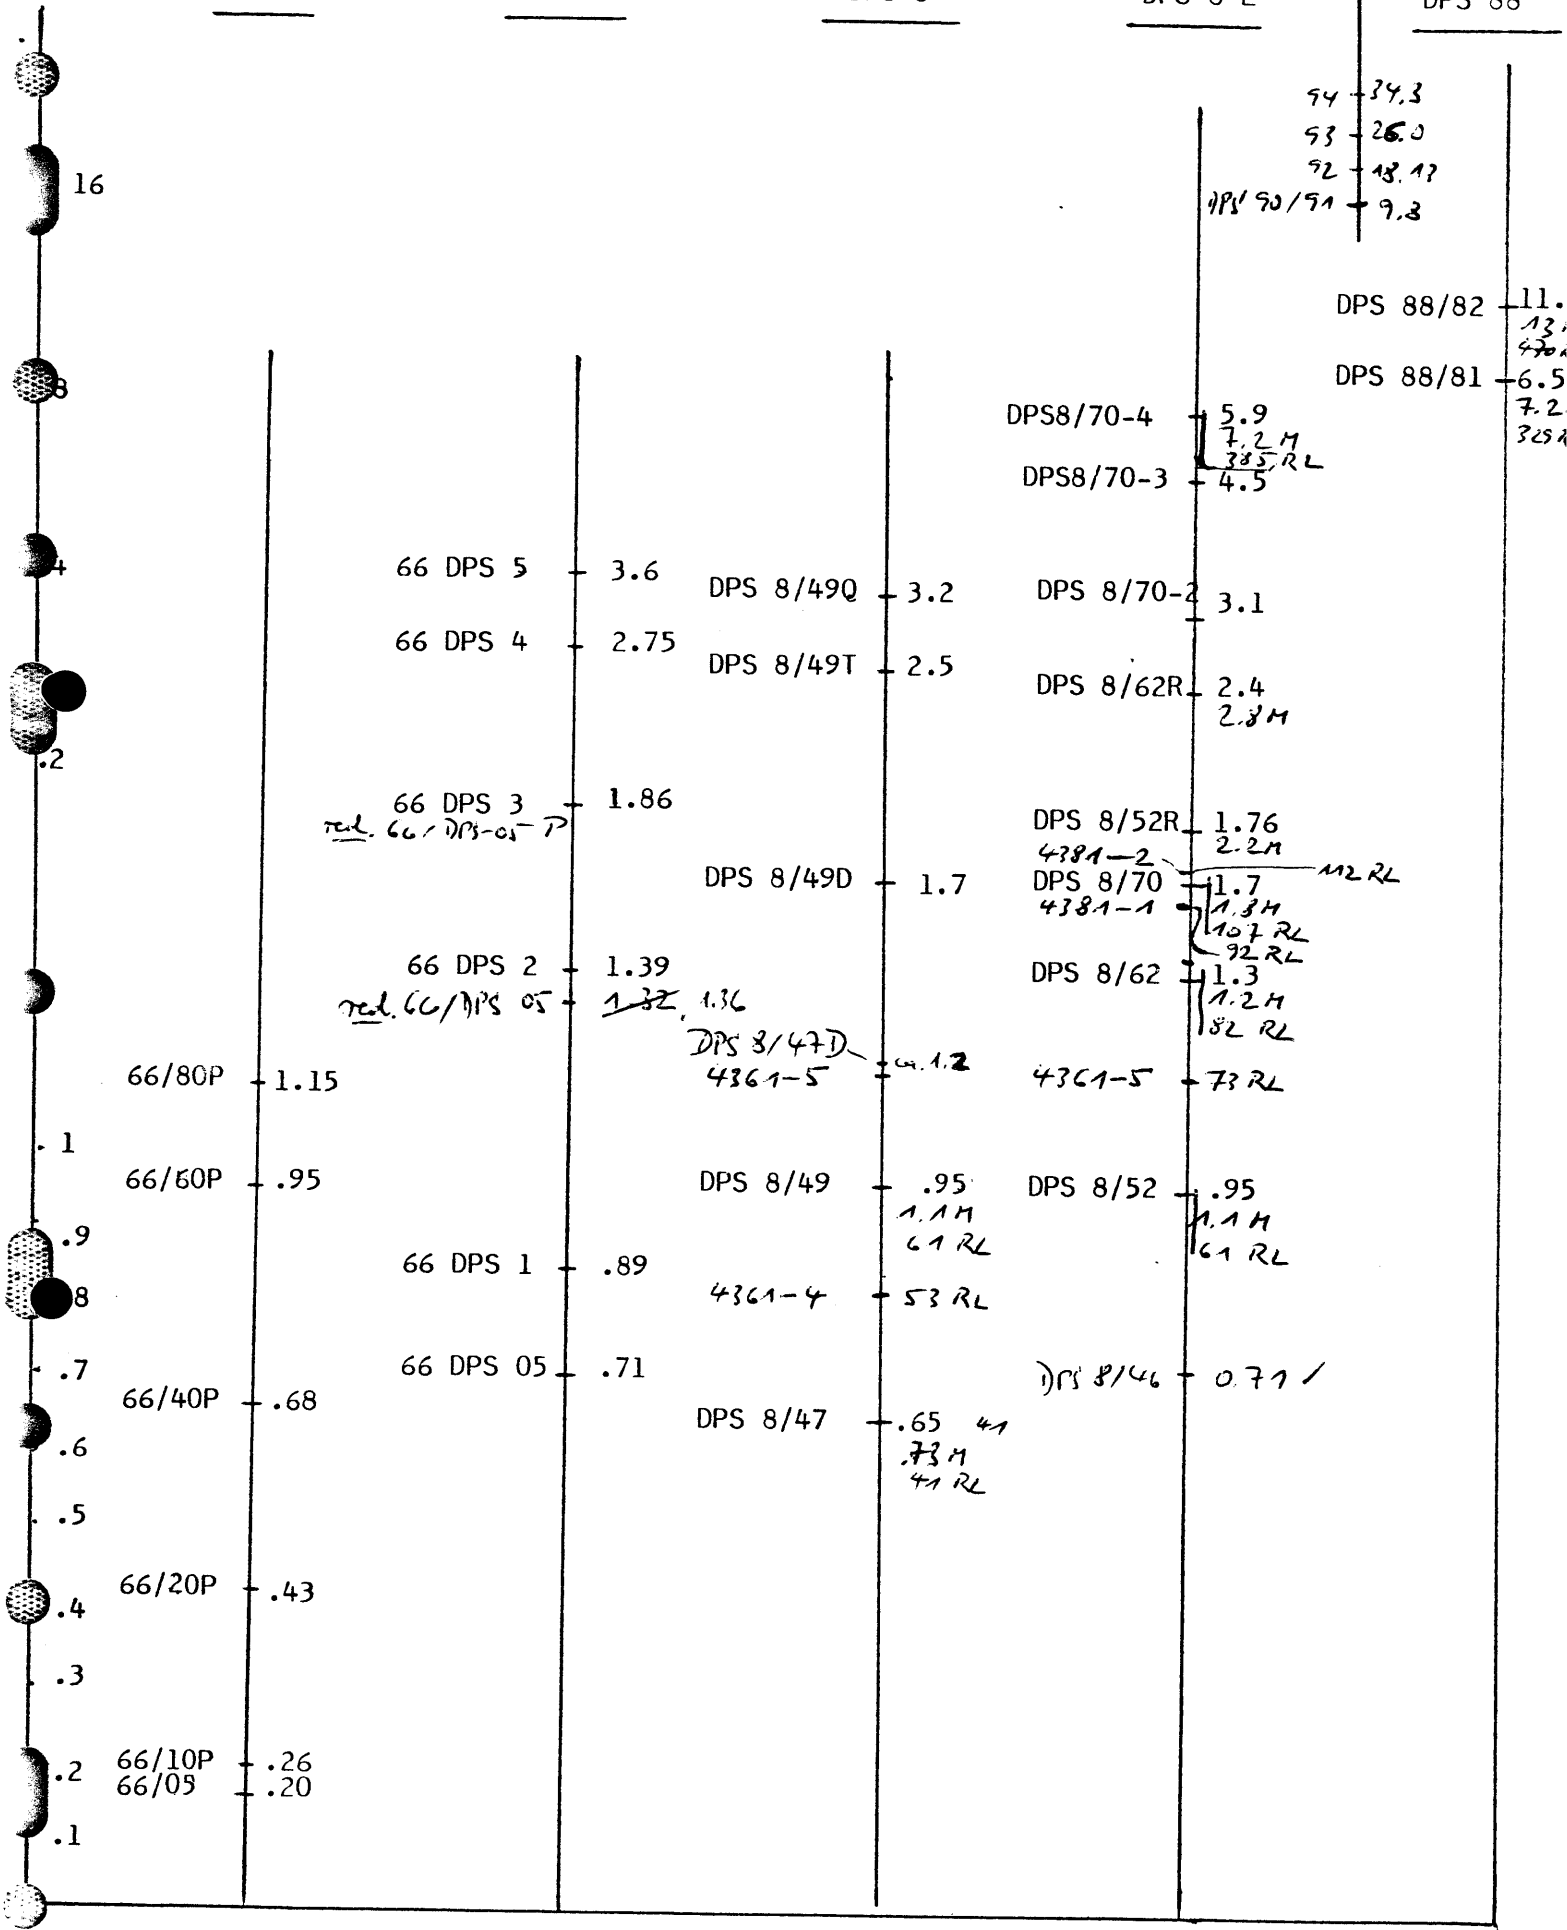 DPS 88
94 34.3
93 26.0
92 18.13
DPS 90/91 9.8
16
8
4
.2
1
.9
8
.7
.6
.5
.4
.3
.2
.1
66/80P 1.15
66/60P .95
66/40P .68
66/20P .43
66/10P .26
66/05 .20
66 DPS 5 3.6
66 DPS 4 2.75
66 DPS 3 1.86
red. 66/DPS-05-P
66 DPS 2 1.39
red. 66/DPS 05 1.32, 1.36
66 DPS 1 .89
66 DPS 05 .71
DPS 8/49Q 3.2
DPS 8/49T 2.5
DPS 8/49D 1.7
DPS 8/47D ca. 1.2
4361-5
DPS 8/49 .95
1.1 M
61 RL
4361-4 53 RL
DPS 8/47 .65 41
.73 M
41 RL
DPS8/70-4 5.9
7.2 M
385 RL
DPS8/70-3 4.5
DPS 8/70-2 3.1
DPS 8/62R 2.4
2.8 M
DPS 8/52R 1.76
2.2M
4381-2 112 RL
DPS 8/70 1.7
4381-1 1.8M
107 RL
92 RL
DPS 8/62 1.3
1.2 M
82 RL
4361-5 73 RL
DPS 8/52 .95
1.1 M
61 RL
DPS 8/46 0.71
DPS 88/82 11.
13
DPS 88/81 6.5
7.2